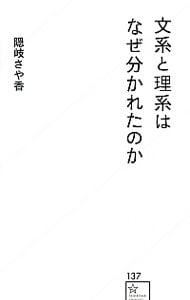 文系と理系は
なぜ分かれたのか
隠岐さや香
137